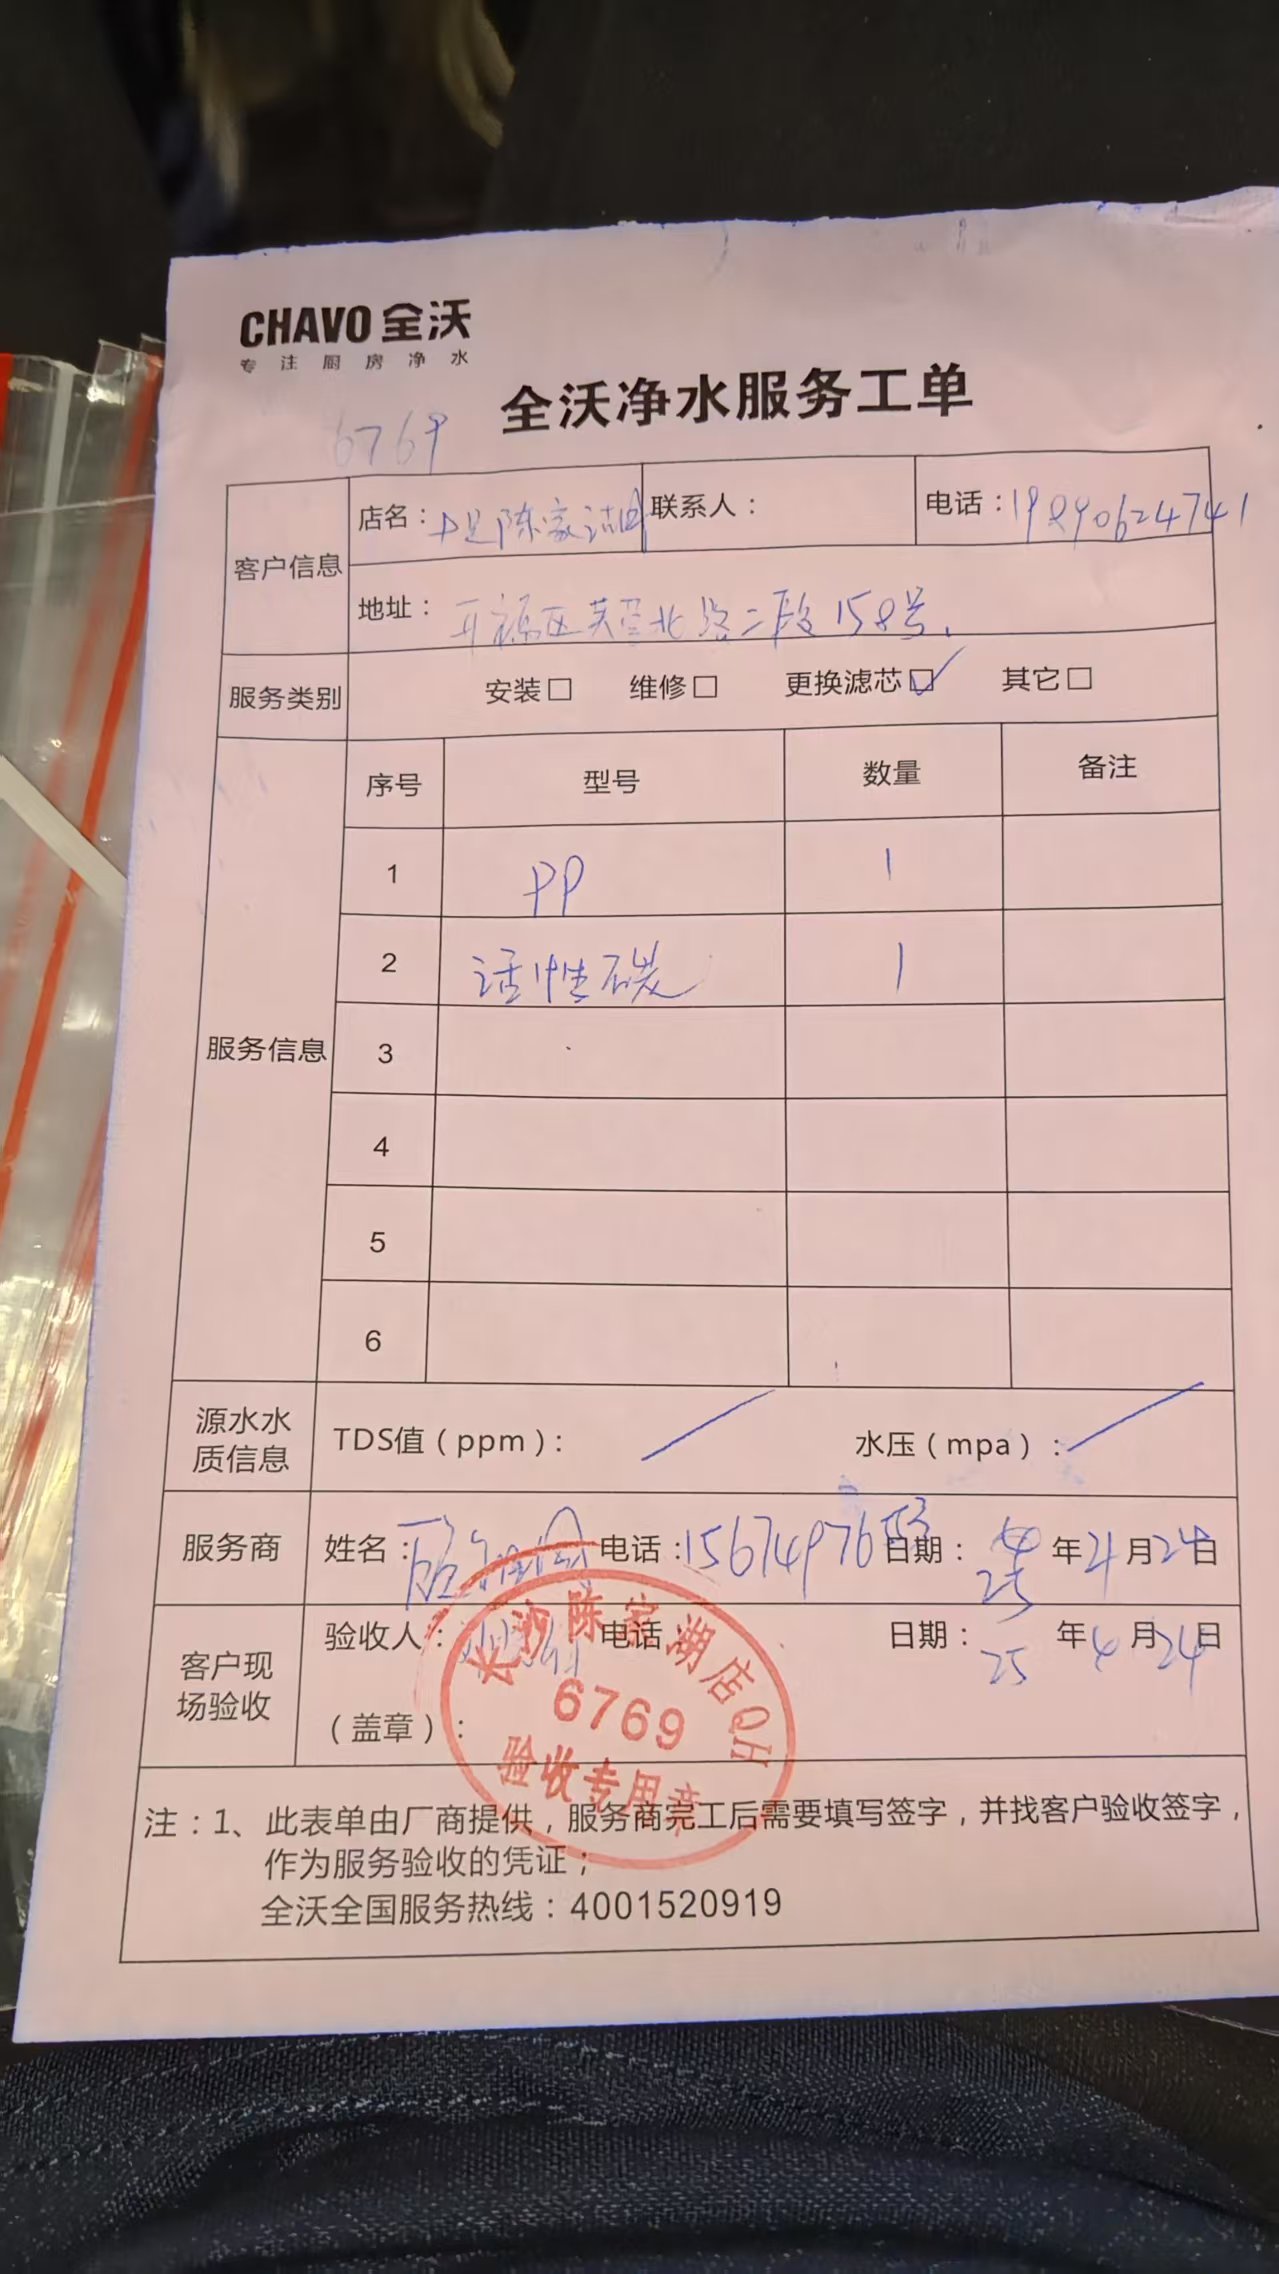 CHAVO 全沃
专注厨房净水
全沃净水服务工单
6769
客户信息
店名：陈家湖 联系人： 电话：19890624741
地址：开福区芙蓉北路二段158号.
服务类别 安装□ 维修□ 更换滤芯☑ 其它□
服务信息
序号 型号 数量 备注
1 PP 1
2 活性碳 1
3
4
5
6
源水水质信息 TDS值（ppm）：/ 水压（mpa）：/
服务商 姓名： 电话：15674976 日期：25 年 4 月 24 日
客户现场验收 验收人： 电话： 日期：25 年 4 月 24 日
（盖章）：
长沙陈家湖店QH
6769
验收专用章
注：1、此表单由厂商提供，服务商完工后需要填写签字，并找客户验收签字，
作为服务验收的凭证；
全沃全国服务热线：4001520919